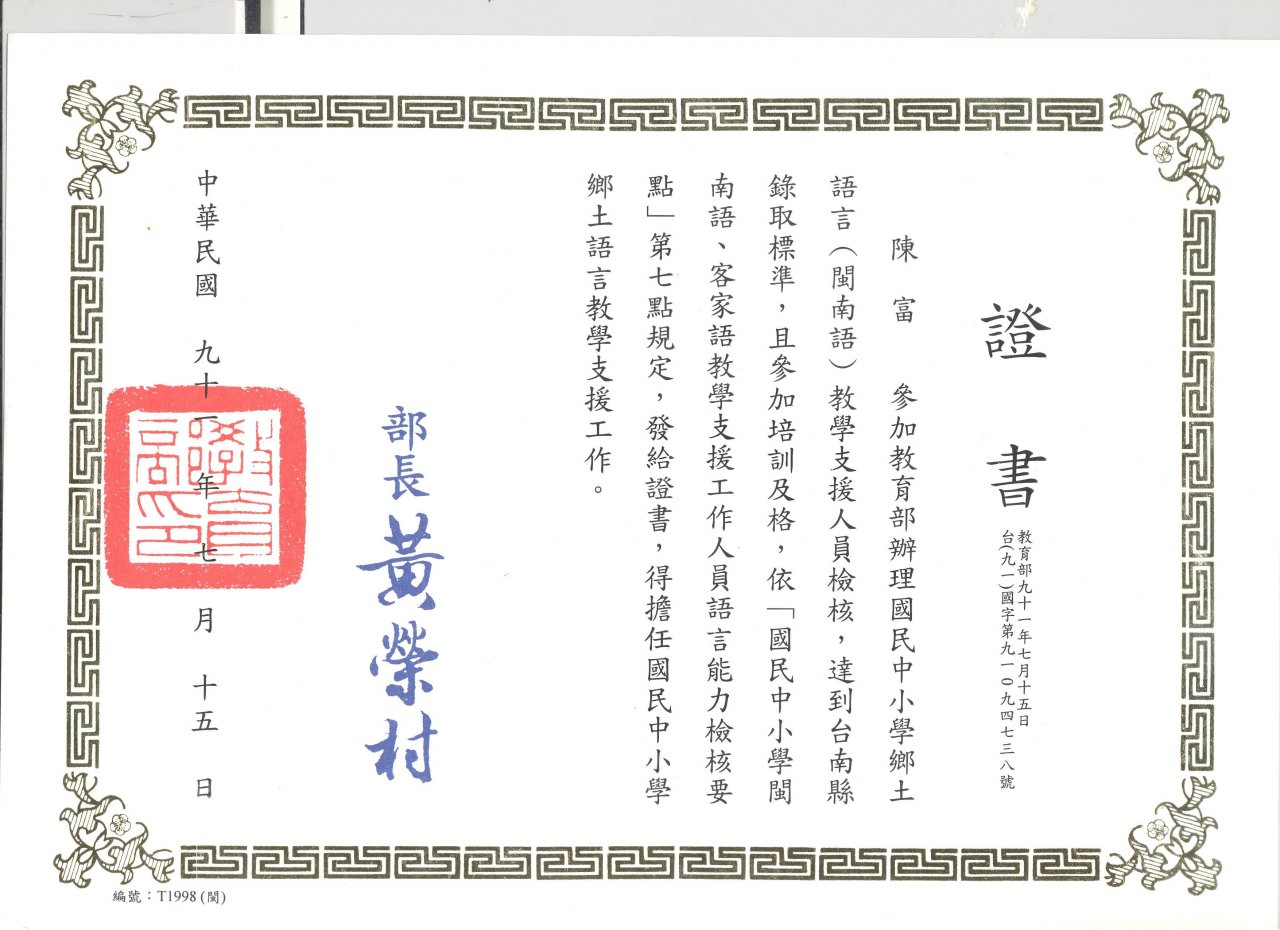 證書
教育部九十一年七月十五日
台(九一)國字第九一０九四七三八號
陳富 參加教育部辦理國民中小學鄉土
語言（閩南語）教學支援人員檢核，達到台南縣
錄取標準，且參加培訓及格，依「國民中小學閩
南語、客家語教學支援工作人員語言能力檢核要
點」第七點規定，發給證書，得擔任國民中小學
鄉土語言教學支援工作。
部長 黃榮村
教育部印
中華民國 九十一年七月十五日
編號：T1998 (閩)